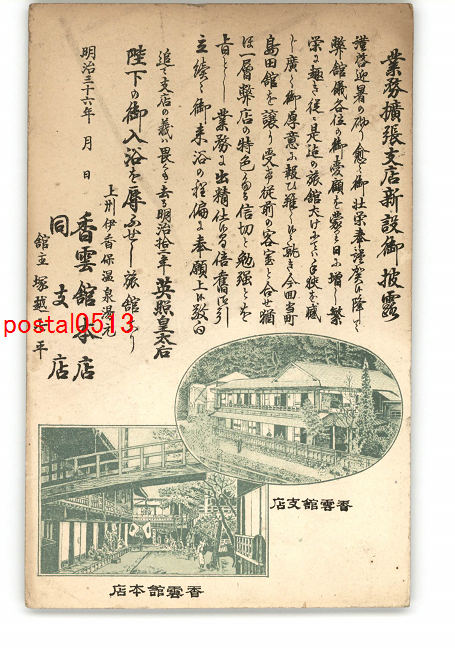 業務擴張支店新設御披露
謹啓迎暑の砌り愈々御壮栄奉謹賀候降て
弊館儀各位の御愛顧を蒙り日に増し繁
栄に趣き従つて是迄の旅館丈けにては手狭を感
じ廣く御厚意に報ひ難く就き今回当町
島田館を譲り受け従前の客室と合せ猶
ほ一層弊店の特色なる信切と勉強とを
旨とし業務に出精仕候間倍舊御引
立続々御来浴の程偏に奉願上候敬白
追て支店の義は畏くも去る明治拾二年英照皇太后
陛下の御入浴を辱ふせし旅館なり
明治三十六年 月 日
上州伊香保温泉湯元
香雲館本店
同 支店
館主 塚越 平
postal0513
香雲館支店
香雲館本店